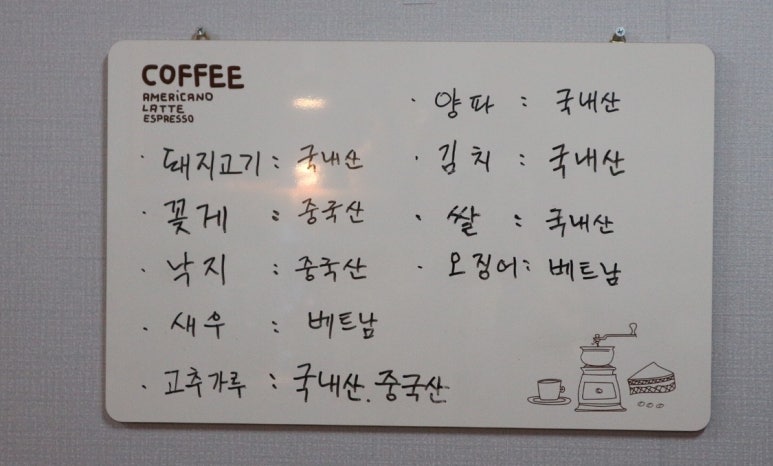 COFFEE
AMERICANO
LATTE
ESPRESSO
· 돼지고기 : 국내산
· 꽃게 : 중국산
· 낙지 : 중국산
· 새우 : 베트남
· 고추가루 : 국내산. 중국산
· 양파 : 국내산
· 김치 : 국내산
· 쌀 : 국내산
· 오징어 : 베트남